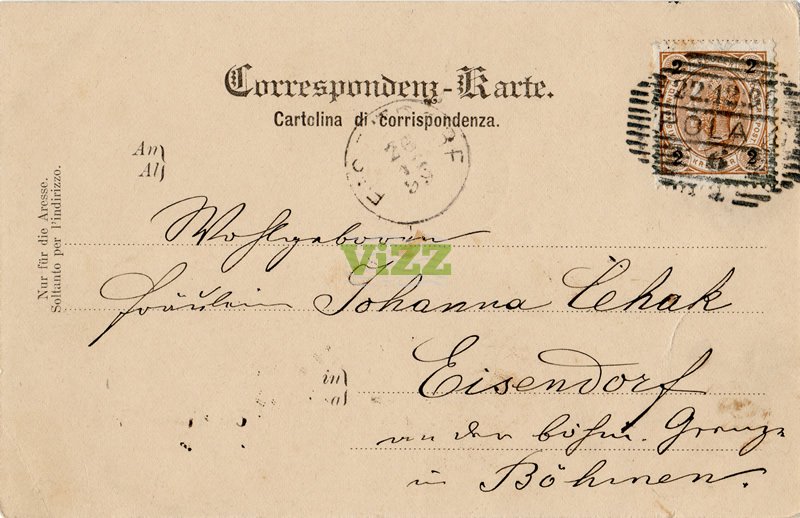 Correspondenz-Karte.
Cartolina di corrispondenza.
An
Al
Nur für die Aresse.
Soltanto per l'indirizzo.
2 2
22.12.9
POLA
2 2
Wohlgeboren
ViZZ
Fräulein Johanna Cehak
in
a
Eisendorf
an der böhm. Grenze
in Böhmen.